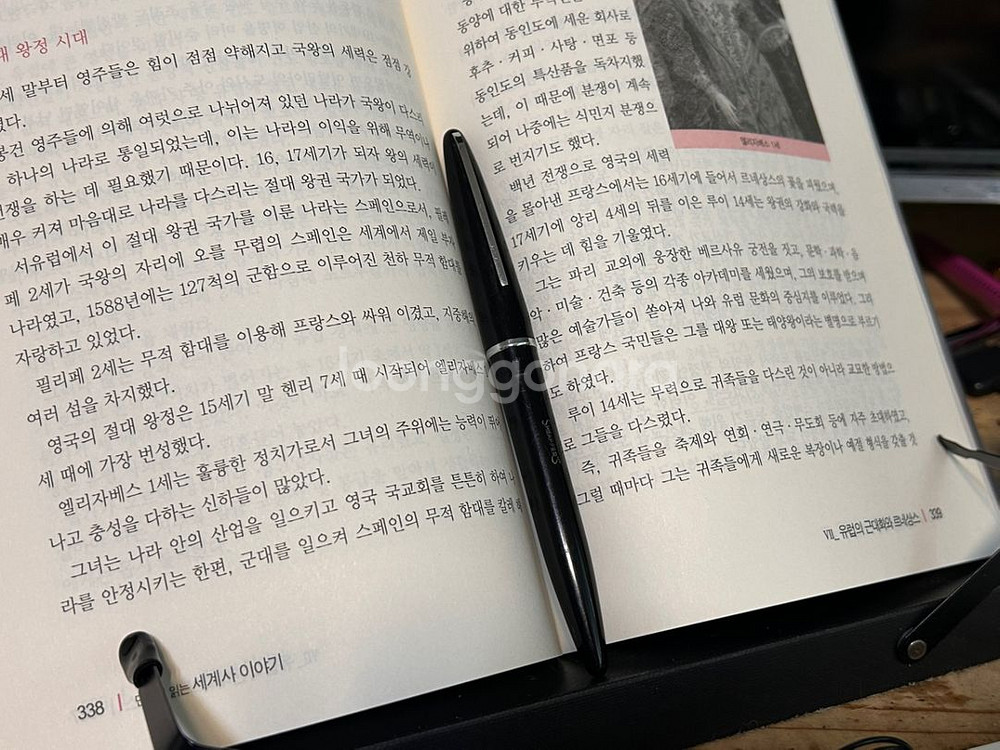 대 왕정 시대
세 말부터 영주들은 힘이 점점 약해지고 국왕의 세력은 점점 강
졌다.
봉건 영주들에 의해 여럿으로 나뉘어져 있던 나라가 국왕이 다스리
하나의 나라로 통일되었는데, 이는 나라의 이익을 위해 무역이나
전쟁을 하는 데 필요했기 때문이다. 16, 17세기가 되자 왕의 세력이
매우 커져 마음대로 나라를 다스리는 절대 왕권 국가가 되었다.
서유럽에서 이 절대 왕권 국가를 이룬 나라는 스페인으로서, 필리
페 2세가 국왕의 자리에 오를 무렵의 스페인은 세계에서 제일 부자
나라였고, 1588년에는 127척의 군함으로 이루어진 천하 무적 함대를
자랑하고 있었다.
필리페 2세는 무적 함대를 이용해 프랑스와 싸워 이겼고, 지중해의
여러 섬을 차지했다.
영국의 절대 왕정은 15세기 말 헨리 7세 때 시작되어 엘리자베스
세 때에 가장 번성했다.
엘리자베스 1세는 훌륭한 정치가로서 그녀의 주위에는 능력이 뛰어
나고 충성을 다하는 신하들이 많았다.
그녀는 나라 안의 산업을 일으키고 영국 국교회를 튼튼히 하여 나
라를 안정시키는 한편, 군대를 일으켜 스페인의 무적 함대를 칼레 해
338
읽는 세계사 이야기
동양에 대한
위하여 동인도에 세운 회사로
후추·커피·사탕·면포 등
동인도의 특산품을 독차지했
는데, 이 때문에 분쟁이 계속
되어 나중에는 식민지 분쟁으
로 번지기도 했다.
엘리자베스 1세
백년 전쟁으로 영국의 세력
을 몰아낸 프랑스에서는 16세기에 들어서 르네상스의 꽃을 피웠으며,
17세기에 앙리 4세의 뒤를 이은 루이 14세는 왕권의 강화와 국력을
키우는 데 힘을 기울였다.
그는 파리 교외에 웅장한 베르사유 궁전을 짓고, 문학·과학·음
악·미술·건축 등의 각종 아카데미를 세웠으며, 그의 보호를 받으며
많은 예술가들이 쏟아져 나와 유럽 문화의 중심지를 이루었다. 그리
하여 프랑스 국민들은 그를 대왕 또는 태양왕이라는 별명으로 부르기
도 하였다.
루이 14세는 무력으로 귀족들을 다스린 것이 아니라 교묘한 방법으
로 그들을 다스렸다.
즉, 귀족들을 축제와 연회·연극·무도회 등에 자주 초대하였고,
그럴 때마다 그는 귀족들에게 새로운 복장이나 예절 형식을 갖출 것
VII_ 유럽의 근대화와 르네상스 | 339